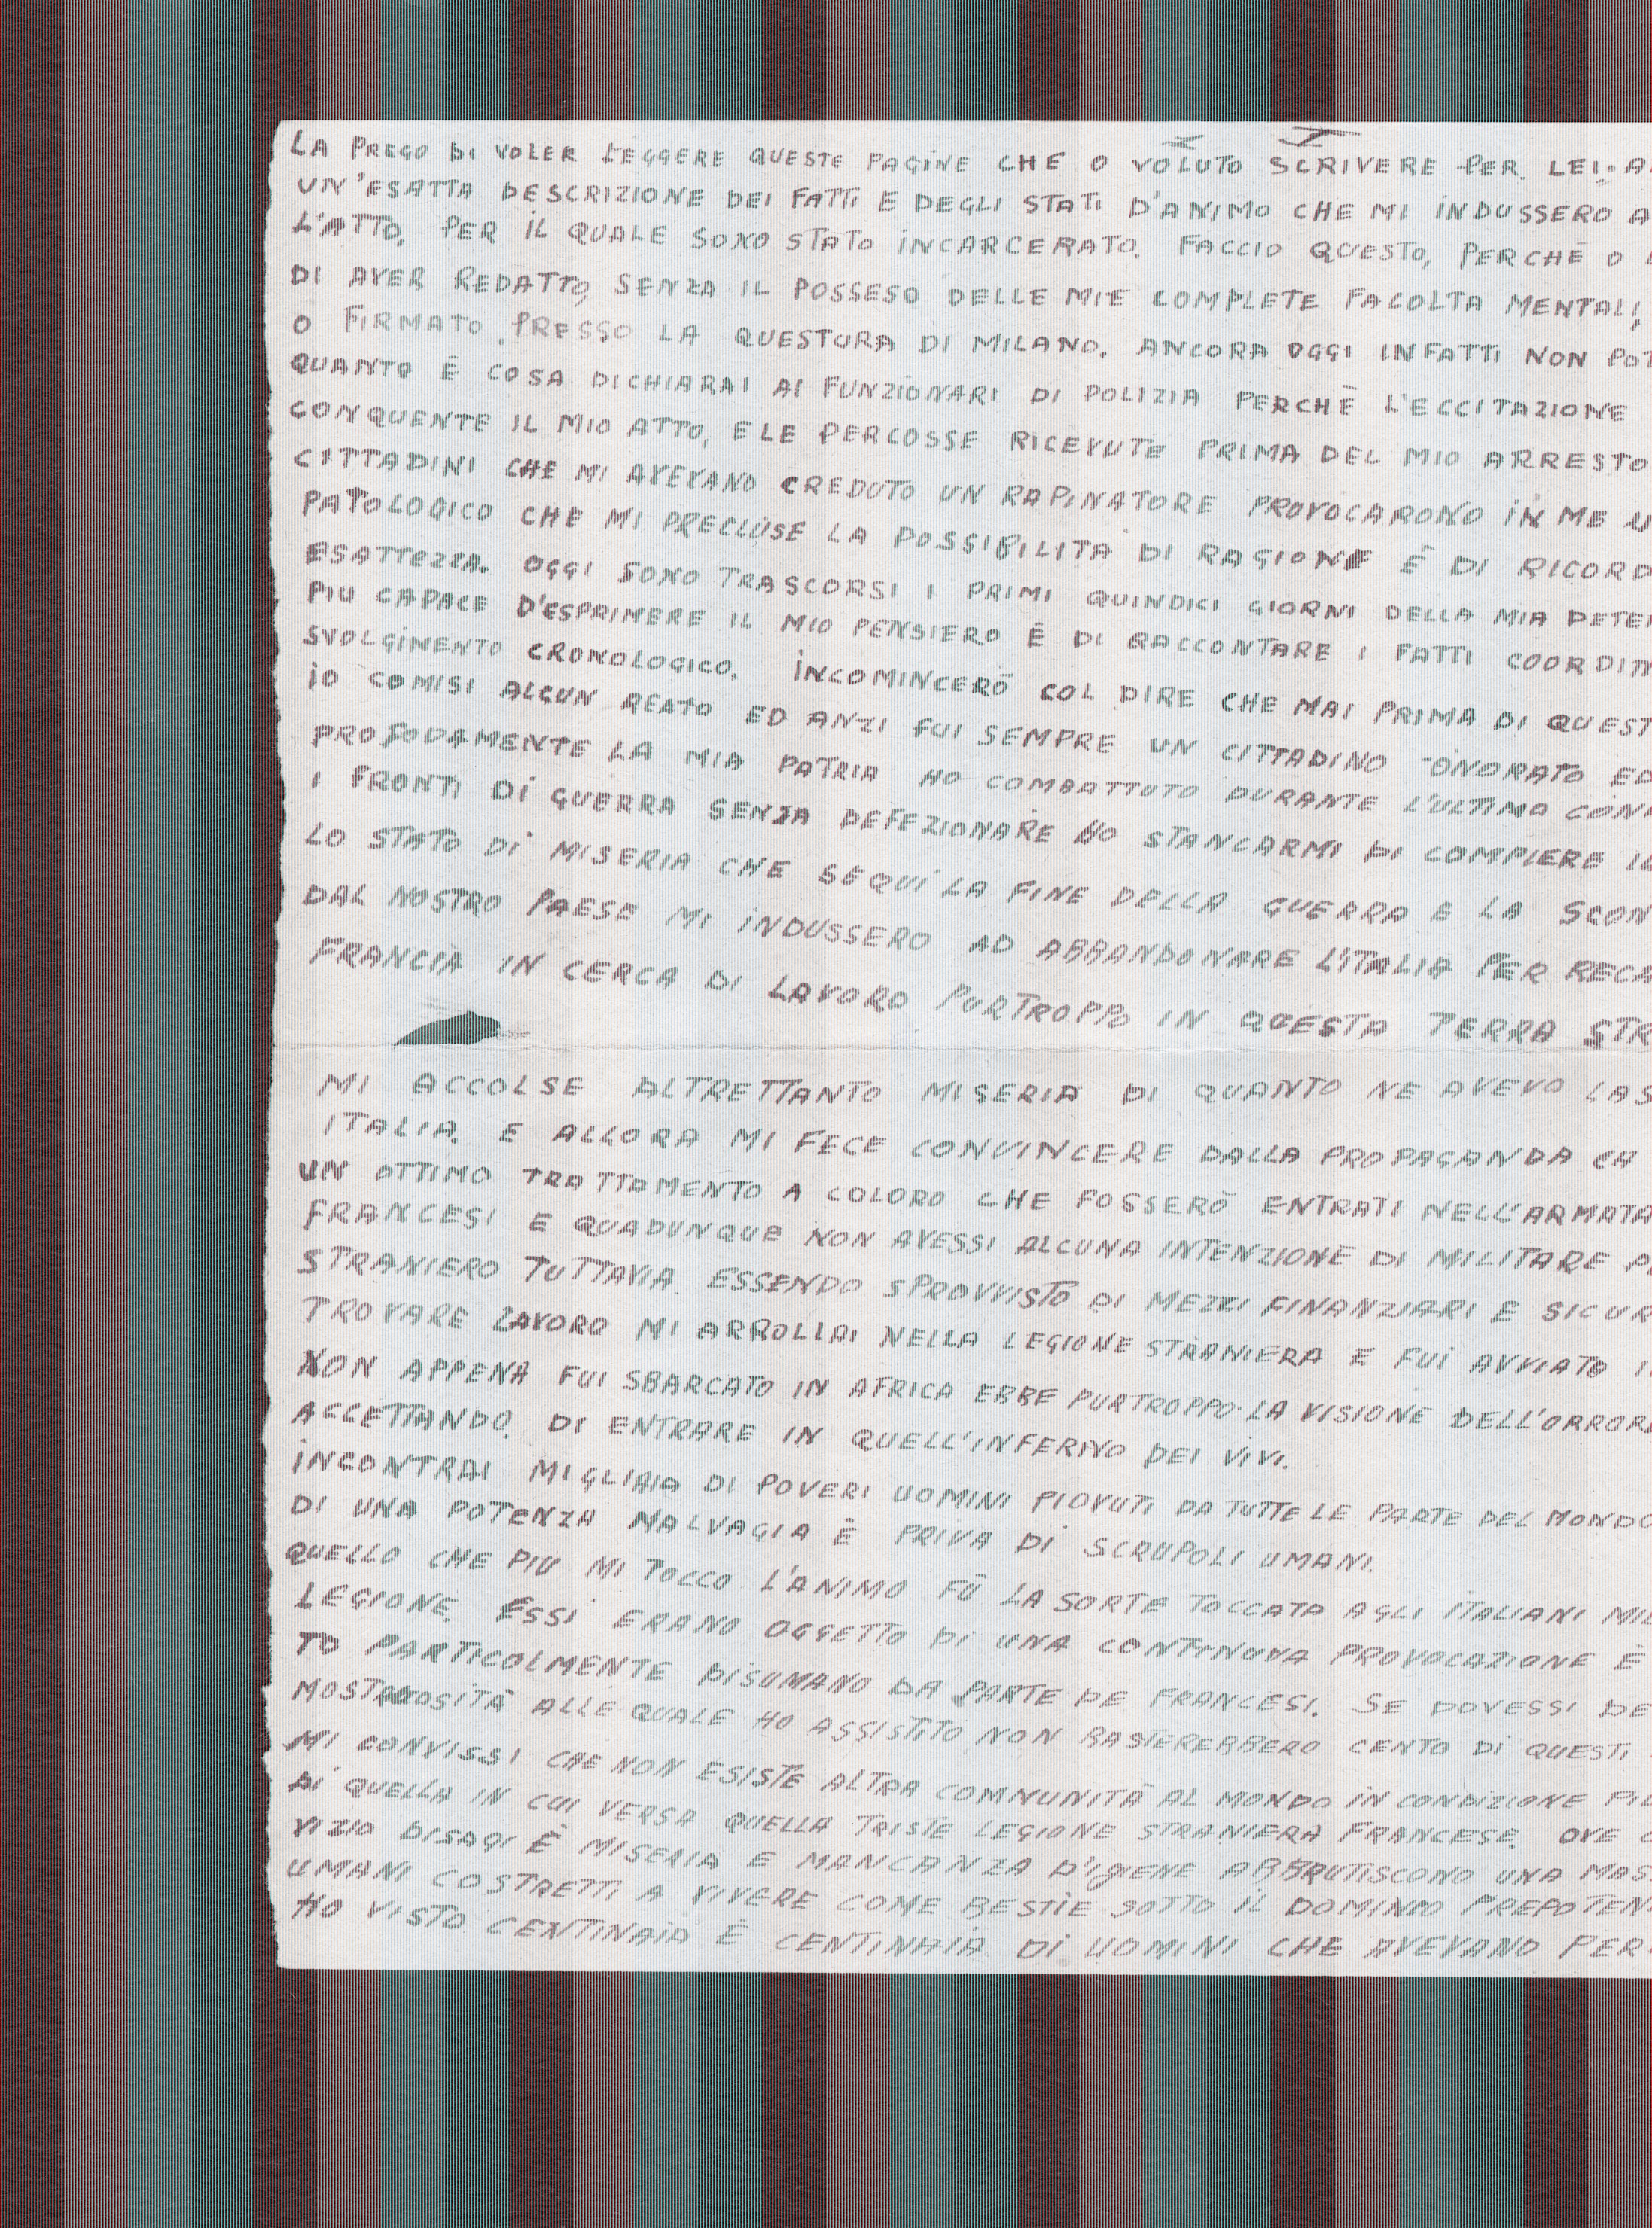 LA PREGO DI VOLER LEGGERE QUESTE PAGINE CHE O VOLUTO SCRIVERE PER LEI. A
UN'ESATTA DESCRIZIONE DEI FATTI E DEGLI STATI D'ANIMO CHE MI INDUSSERO A
L'ATTO, PER IL QUALE SONO STATO INCARCERATO. FACCIO QUESTO, PERCHÈ O
DI AVER REDATTO, SENZA IL POSSESO DELLE MIE COMPLETE FACOLTA MENTALI,
O FIRMATO PRESSO LA QUESTURA DI MILANO. ANCORA OGGI INFATTI NON POT
QUANTO È COSA DICHIARAI AI FUNZIONARI DI POLIZIA PERCHÈ L'ECCITAZIONE
CONQUENTE IL MIO ATTO, E LE PERCOSSE RICEVUTE PRIMA DEL MIO ARRESTO
CITTADINI CHE MI AVEVANO CREDUTO UN RAPINATORE PROVOCARONO IN ME U
PATOLOGICO CHE MI PRECLUSE LA POSSIBILITA DI RAGIONE È DI RICORD
ESATTEZZA. OGGI SONO TRASCORSI I PRIMI QUINDICI GIORNI DELLA MIA DETE
PIU CAPACE D'ESPRIMERE IL MIO PENSIERO È DI RACCONTARE I FATTI COORDIN
SVOLGIMENTO CRONOLOGICO. INCOMINCERÒ COL DIRE CHE MAI PRIMA DI QUEST
IO COMISI ALCUN REATO ED ANZI FUI SEMPRE UN CITTADINO ONORATO ED
PROFODAMENTE LA MIA PATRIA HO COMBATTUTO DURANTE L'ULTIMO CON
I FRONTI DI GUERRA SENZA DEFEZIONARE HO STANCARMI DI COMPIERE IL
LO STATO DI MISERIA CHE SEQUI LA FINE DELLA GUERRA E LA SCON
DAL NOSTRO PAESE MI INDUSSERO AD ABBANDONARE L'ITALIA PER RECA
FRANCIA IN CERCA DI LAVORO PURTROPPO IN QUESTA TERRA STR
MI ACCOLSE ALTRETTANTO MISERIA DI QUANTO NE AVEVO LAS
ITALIA. E ALLORA MI FECE CONVINCERE DALLA PROPAGANDA CH
UN OTTIMO TRATTAMENTO A COLORO CHE FOSSERÒ ENTRATI NELL'ARMATA
FRANCESI E QUADUNQUE NON AVESSI ALCUNA INTENZIONE DI MILITARE P
STRANIERO TUTTAVIA ESSENDO SPROVVISTO DI MEZZI FINANZIARI E SICUR
TROVARE LAVORO MI ARROLLAI NELLA LEGIONE STRANIERA E FUI AVVIATO I
NON APPENA FUI SBARCATO IN AFRICA EBBE PURTROPPO LA VISIONE DELL'ORROR
ACCETTANDO DI ENTRARE IN QUELL'INFERNO DEI VIVI.
INCONTRAI MIGLIAIA DI POVERI UOMINI PIOVUTI DA TUTTE LE PARTE DEL MONDO
DI UNA POTENZA MALVAGIA È PRIVA DI SCRUPOLI UMANI.
QUELLO CHE PIU MI TOCCO L'ANIMO FÙ LA SORTE TOCCATA AGLI ITALIANI MIL
LEGIONE. ESSI ERANO OGGETTO DI UNA CONTINUUA PROVOCAZIONE E
TO PARTICOLMENTE DISUMANO DA PARTE DE FRANCESI. SE DOVESSI DE
MOSTRUOSITÀ ALLE QUALE HO ASSISTITO NON BASTEREBBERO CENTO DI QUESTI
MI CONVISSI CHE NON ESISTE ALTRA COMNUNITÀ AL MONDO IN CONDIZIONE PIU
DI QUELLA IN CUI VERSA QUELLA TRISTE LEGIONE STRANIERA FRANCESE. OVE
VIZIO DISAGI È MISERIA E MANCANZA D'IGIENE ABBRUTISCONO UNA MAS
UMANI COSTRETTI A VIVERE COME BESTIE SOTTO IL DOMINIO PREPOTEN
HO VISTO CENTINAIA È CENTINAIA DI UOMINI CHE AVEVANO PER